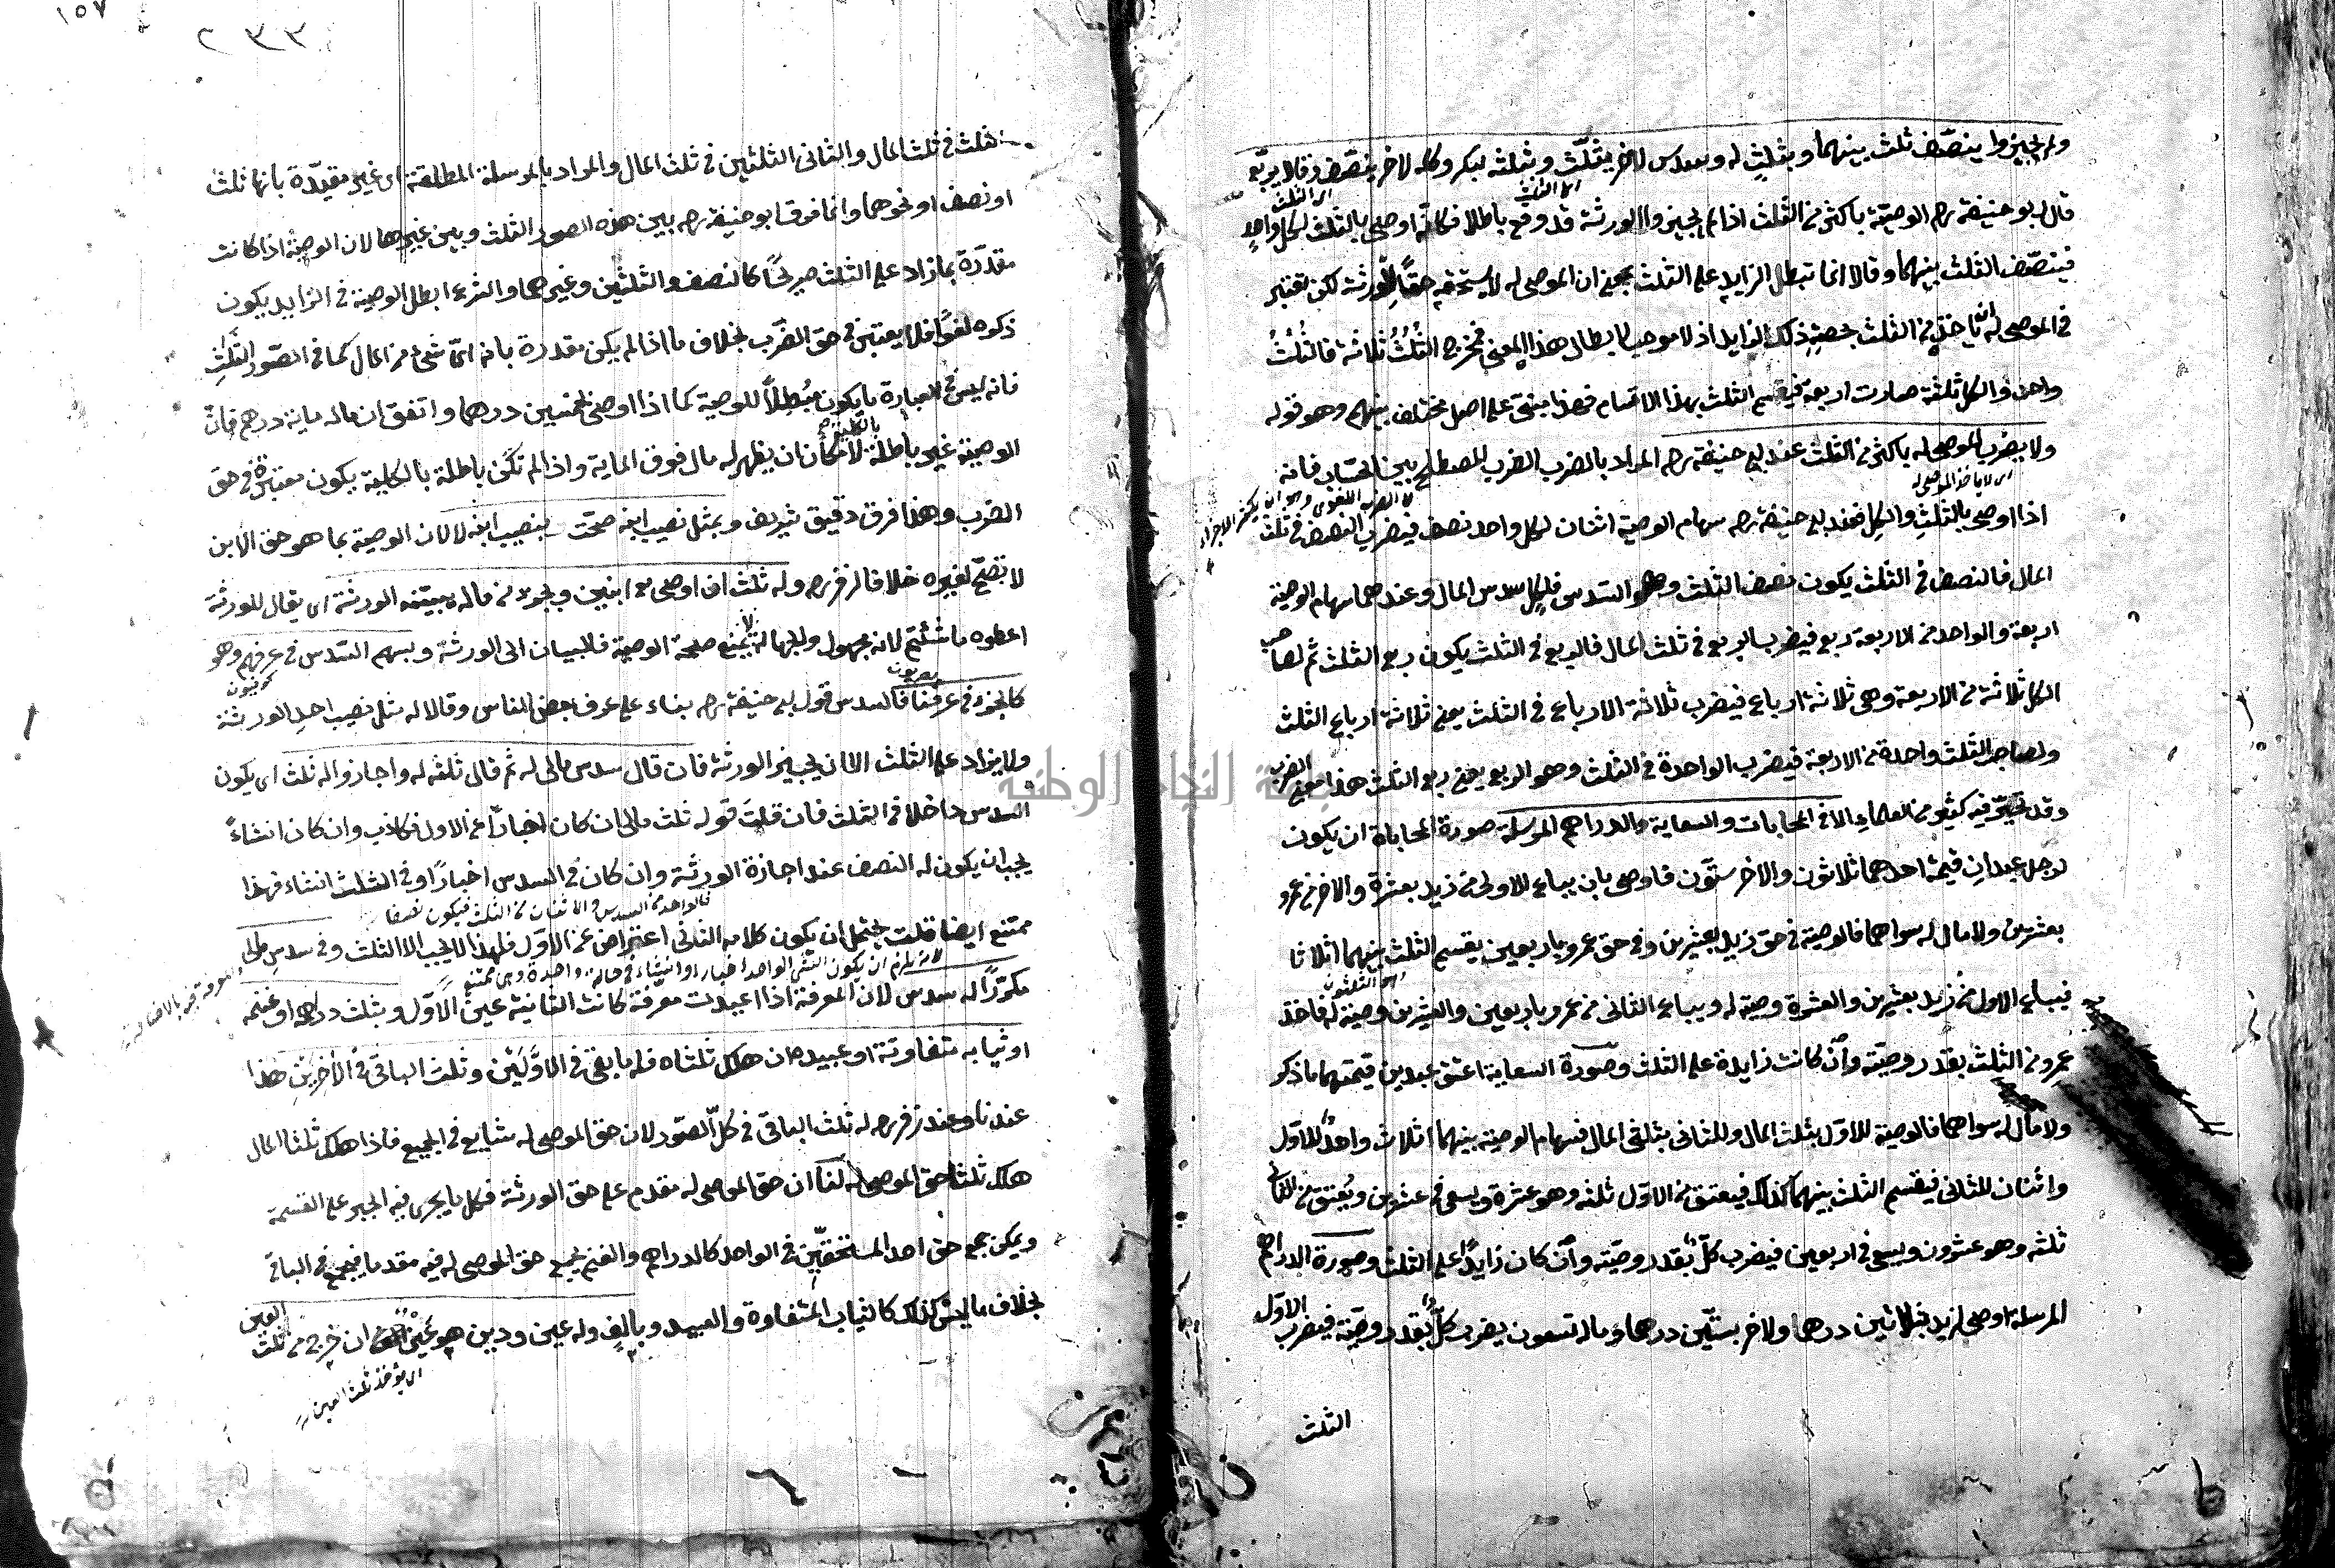 ولم يجيزوا ينصّف ثلث بينهما وبثلثٍ له وسدس لاخر يثلّث وبثلثه لبكر وكله لاخر ينصّف وقالا يربّع
اى الثلث
اى الثلث
قال ابو حنيفة رحمه الوصيّة باكثر من الثلث اذا لم يجيزوا الورثة قد وقع باطلا فكانّه اوصى بالثلث لكل واحدٍ
فينصّف الثلث بينهما وقالا انما تبطل الزايد على الثلث بمعنى ان الموصى له لا يستحقه حقًا للورثة لكن تعتبر
فى الموصى له انّ ياخذ من الثلث بحصة ذلك الزايد اذ لا موجب لابطال هذا المعنى فمخرج الثُلُثُ ثلاثة فالثُلُثُ
واحد والكل ثلثة صارت اربعة فيقسم الثلث بهذا الاقسام فهذا يبتنى على اصل مختلف بينهم وهو قوله
ولا يضرب الموصى له باكثر من الثلث عند ابى حنيفة رحمه المراد بالضرب الضرب المصطلح بين الحسّاب فانه
اى لا ياخذ الموصى له
لا الضرب اللغوى وهو ان يكثر الاجزاء
اذا اوصى بالثلثِ والكل فعند ابى حنيفة رحمه سهام الوصية اثنان لكل واحد نصف فيضرب النصف فى ثلث
المال فالنصف فى الثلث يكون نصف الثلث وهو السّدس فلكلٍ سدس المال وعندهما سهام الوصية
اربعة والواحد من الاربعة ربع فيضرب الربع فى ثلث المال فالربع فى الثلث يكون ربع الثلث ثم لصاحب
الكل ثلاثة من الاربعة وهى ثلاثة ارباع فيضرب ثلاثة الارباع فى الثلث يعنى ثلاثة ارباع الثلث
ولصاحب الثلث واحدة من الاربعة فيضرب الواحدة فى الثلث وهو الربع يعنى ربع الثلث هذا معنى الضرب
وقد تحيّر فيه كثير من العلماء الا فى المحابات والسعاية والدراهم المرسلة صورة المحاباة ان يكون
لرجل عبدان قيمة احدهما ثلاثون والاخر ستّون فاوصى بان يباع الاولى من زيد بعشرة والاخر من عمرو
بعشرين ولا مال له سواهما فالوصية فى حق زيد بعشرين وفى حق عمرو باربعين يقسم الثلث بينهما اثلاثا
فيباع الاول من زيد بعشرين والعشرة وصية له ويباع الثانى من عمرو باربعين والعشرين وصية له فاخذ
عمرو من الثلث بقدر وصيّته وان كانت زايدة على الثلث وصورة السعاية اعتق عبدين قيمتهما ما ذكر
ولا مال له سواهما فالوصية للاوّل بثلث المال وللثانى بثلثى المال فسهام الوصية بينهما اثلاث واحدٌ للاوّل
واثنان للثانى فيقسم الثلث بينهما كذلك فيعتق من الاوّل ثلثه وهو عشرة ويسعى فى عشرين ويُعتق من الثانى
ثلثه وهو عشرون ويسعى فى اربعين فيضرب كلّ بقدر وصيّته وان كان زايدًا على الثلث وصورة الدراهم
المرسلة اوصى لزيد بثلاثين درهما ولاخر بستّين درهما وماله تسعون يضرب كلّ بقدر وصيّته فيضرب الاوّل
الثلث
١٥٧
٢٣٣
الثلث فى ثلث المال والثانى الثلثين فى ثلث المال والمراد بالمرسلة المطلقة اى غير مقيّدة بانها ثلث
او نصف او نحوهما وانما فرق ابو حنيفة رحمه بين هذه الصور الثلث وبين غيرها لان الوصية اذا كانت
مقدّرة بما زاد على الثلث صريحًا كالنصف والثلثين وغيرهما والشرع ابطل الوصية فى الزايد يكون
ذكره لغوًا فلا يعتبر فى حق الضرب بخلاف ما اذا لم يكن مقدرة بانه اىّ شىء من المال كما فى الصّور الثلث
فانه ليس فى العبارة ما يكون مُبْطِلًا للوصية كما اذا اوصى بخمسين درهما واتفق ان ماله ماية درهم فانّ
بالكلية
الوصية غير باطلة لامكان ان يظهر له مال فوق الماية واذا لم تكن باطلة بالكلية يكون معتبرة فى حق
الضرب وهذا فرق دقيق شريف وبمثل نصيب ابنه صحّت بنصيب ابنه لا لان الوصية بما هو حق الابن
لا تصحّ لغيره خلافا لزفر رحمه وله ثلث ان اوصى مع ابنين وبجزء من ماله يبيّنه الورثة اى يقال للورثة
اعطوه ما شئتم لانه مجهول والجهالة لا تمنع صحة الوصية فالبيان الى الورثة وبسهم السّدس فى عرفهم وهو
كوفيون
كالجزء فى عرفنا فالسدس قول ابى حنيفة رحمه بناء على عرف بعض الناس وقالا له مثل نصيب احد الورثة
ولا يزاد على الثلث الا ان يجيز الورثة فان قال سدس مالى له ثم قال ثلثه له واجازوا له ثلث اى يكون
السدس داخلا فى الثلث فان قلتَ قوله ثلث مالى ان كان اخبارًا فى الاول فكاذب وان كان انشاءً
يجب ان يكون له النصف عند اجازة الورثة وان كان فى السدس اخبارًا وفى الثلث انشاء فهذا
فالواحد من السدس والاثنان من الثلث فيكون نصفا
ممتنع ايضا قلت يحتمل ان يكون كلامه الثانى اعتراض عن الاوّل فلهذا لا يجب الا الثلث وفى سدس مالى
لانه يلزم ان يكون الشىء الواحد اخبارا وانشاء فى حالة واحدة وهى ممتنع
مكرّرًا له سدس لان المعرفة اذا اعيدت معرّفة كانت الثانية عين الاوّل وبثلث دراهمه او غنمه
او ثيابه متفاوتة او عبيده ان هلك ثلثاه فله ما بقى فى الاوَّلَيْن وثلث الباقى فى الأخِريْنِ هذا
عندنا وعند زفر رحمه له ثلث الباقى فى كلّ الصّور لان حق الموصى له شايع فى الجميع فاذا هلك ثلثا المال
هلك ثلثا حق الموصى له لنا ان حق الموصى له مقدم على حق الورثة فكل ما يجرى فيه الجبر على القسمة
ويمكن جمع حق احد المستحقّين فى الواحد كالدراهم والغنم يجمع حق الموصى له فيه مقدما فيجمع فى الباقى
بخلاف ما ليس كذلك كالثياب المتفاوتة والعبيد وبالفٍ وله عين ودين هو عينٌ ان خرج من ثلث العين
اى يؤخذ ثلث العين